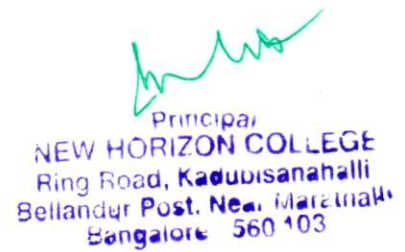 Principal
NEW HORIZON COLLEGE
Ring Road, Kadubisanahalli
Bellandur Post. Near Marathalli
Bangalore 560 103